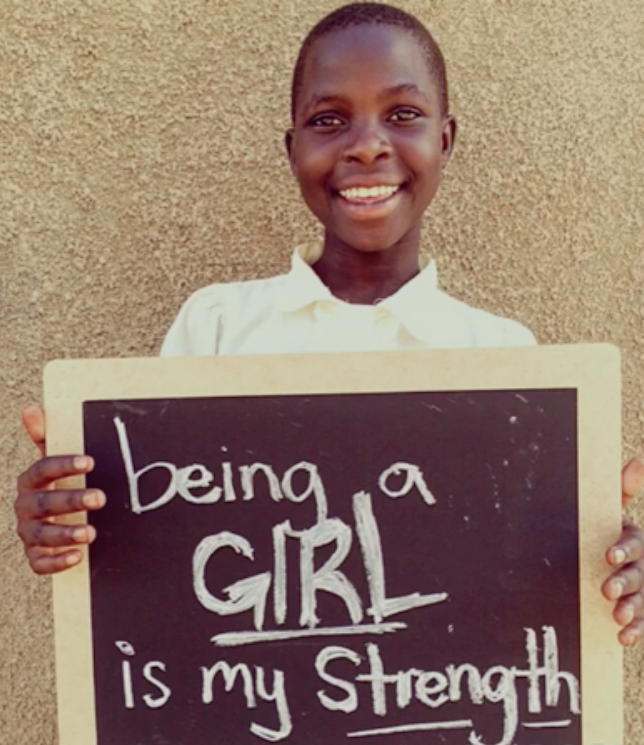 being a
GIRL
is my Strength